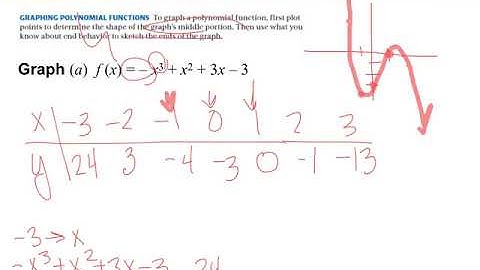 GRAPHING POLYNOMIAL FUNCTIONS To graph a polynomial function, first plot
points to determine the shape of the graph's middle portion. Then use what you
know about end behavior to sketch the ends of the graph.
Graph (a) f(x) = –x³ + x² + 3x – 3
x -3 -2 -1 0 1 2 3
y 24 3 -4 -3 0 -1 -13
-3 → x
-x³+x²+3x-3 24